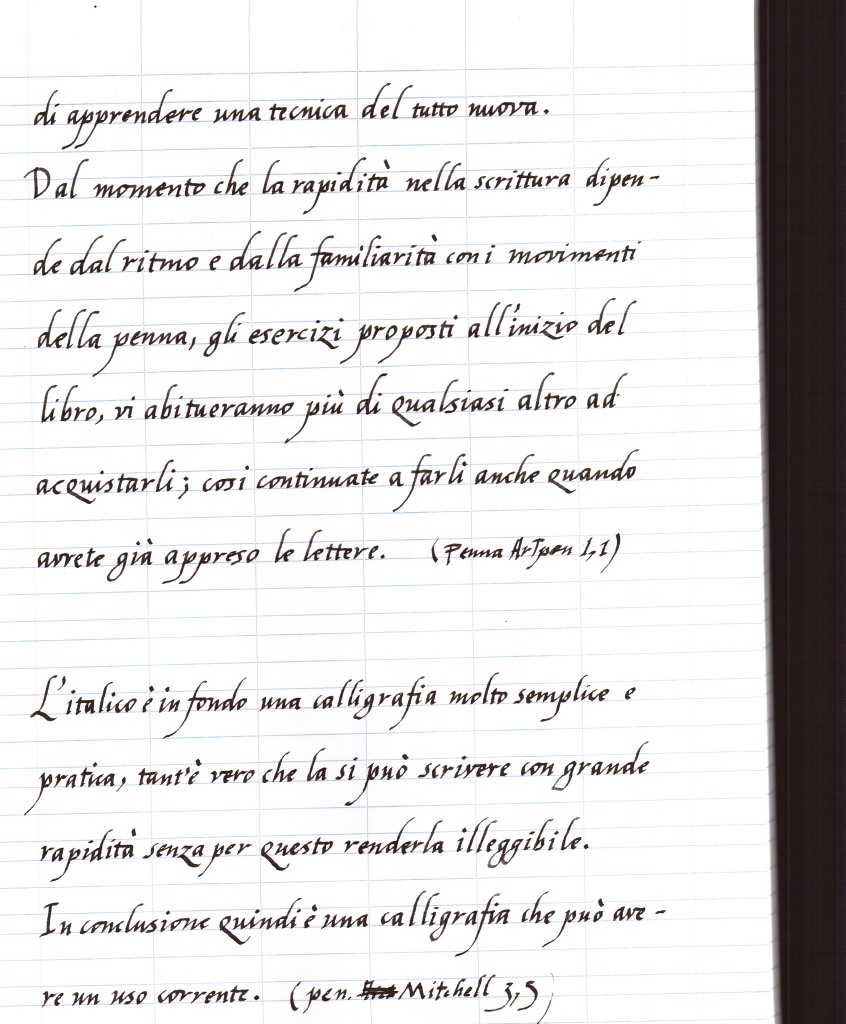 di apprendere una tecnica del tutto nuova.
Dal momento che la rapidità nella scrittura dipen-
de dal ritmo e dalla familiarità con i movimenti
della penna, gli esercizi proposti all'inizio del
libro, vi abitueranno più di qualsiasi altro ad
acquistarli; così continuate a farli anche quando
avrete già appreso le lettere. (Penna ArTpen 1,1)
L'italico è in fondo una calligrafia molto semplice e
pratica, tant'è vero che la si può scrivere con grande
rapidità senza per questo renderla illeggibile.
In conclusione quindi è una calligrafia che può ave-
re un uso corrente. (pen. Mitchell 3,5)